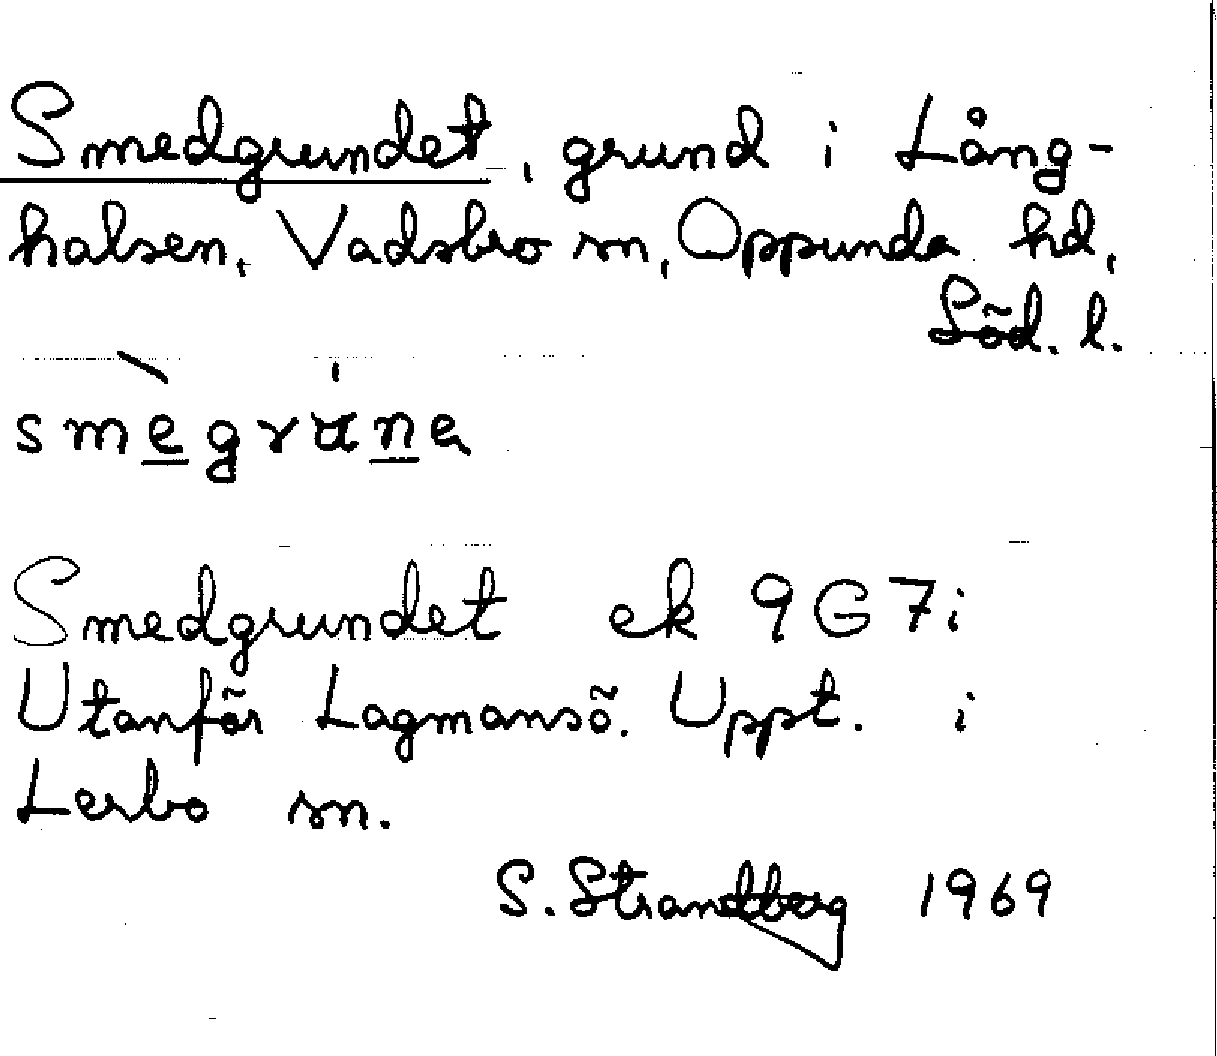 Smedgrundet, grund i Lång-
halsen, Vadsbro sn, Oppunda hd,
Söd. l.
smègruna
Smedgrundet ek 9G7i
Utanför Lagmansö. Uppt. i
Lerbo sn.
S. Strandberg 1969